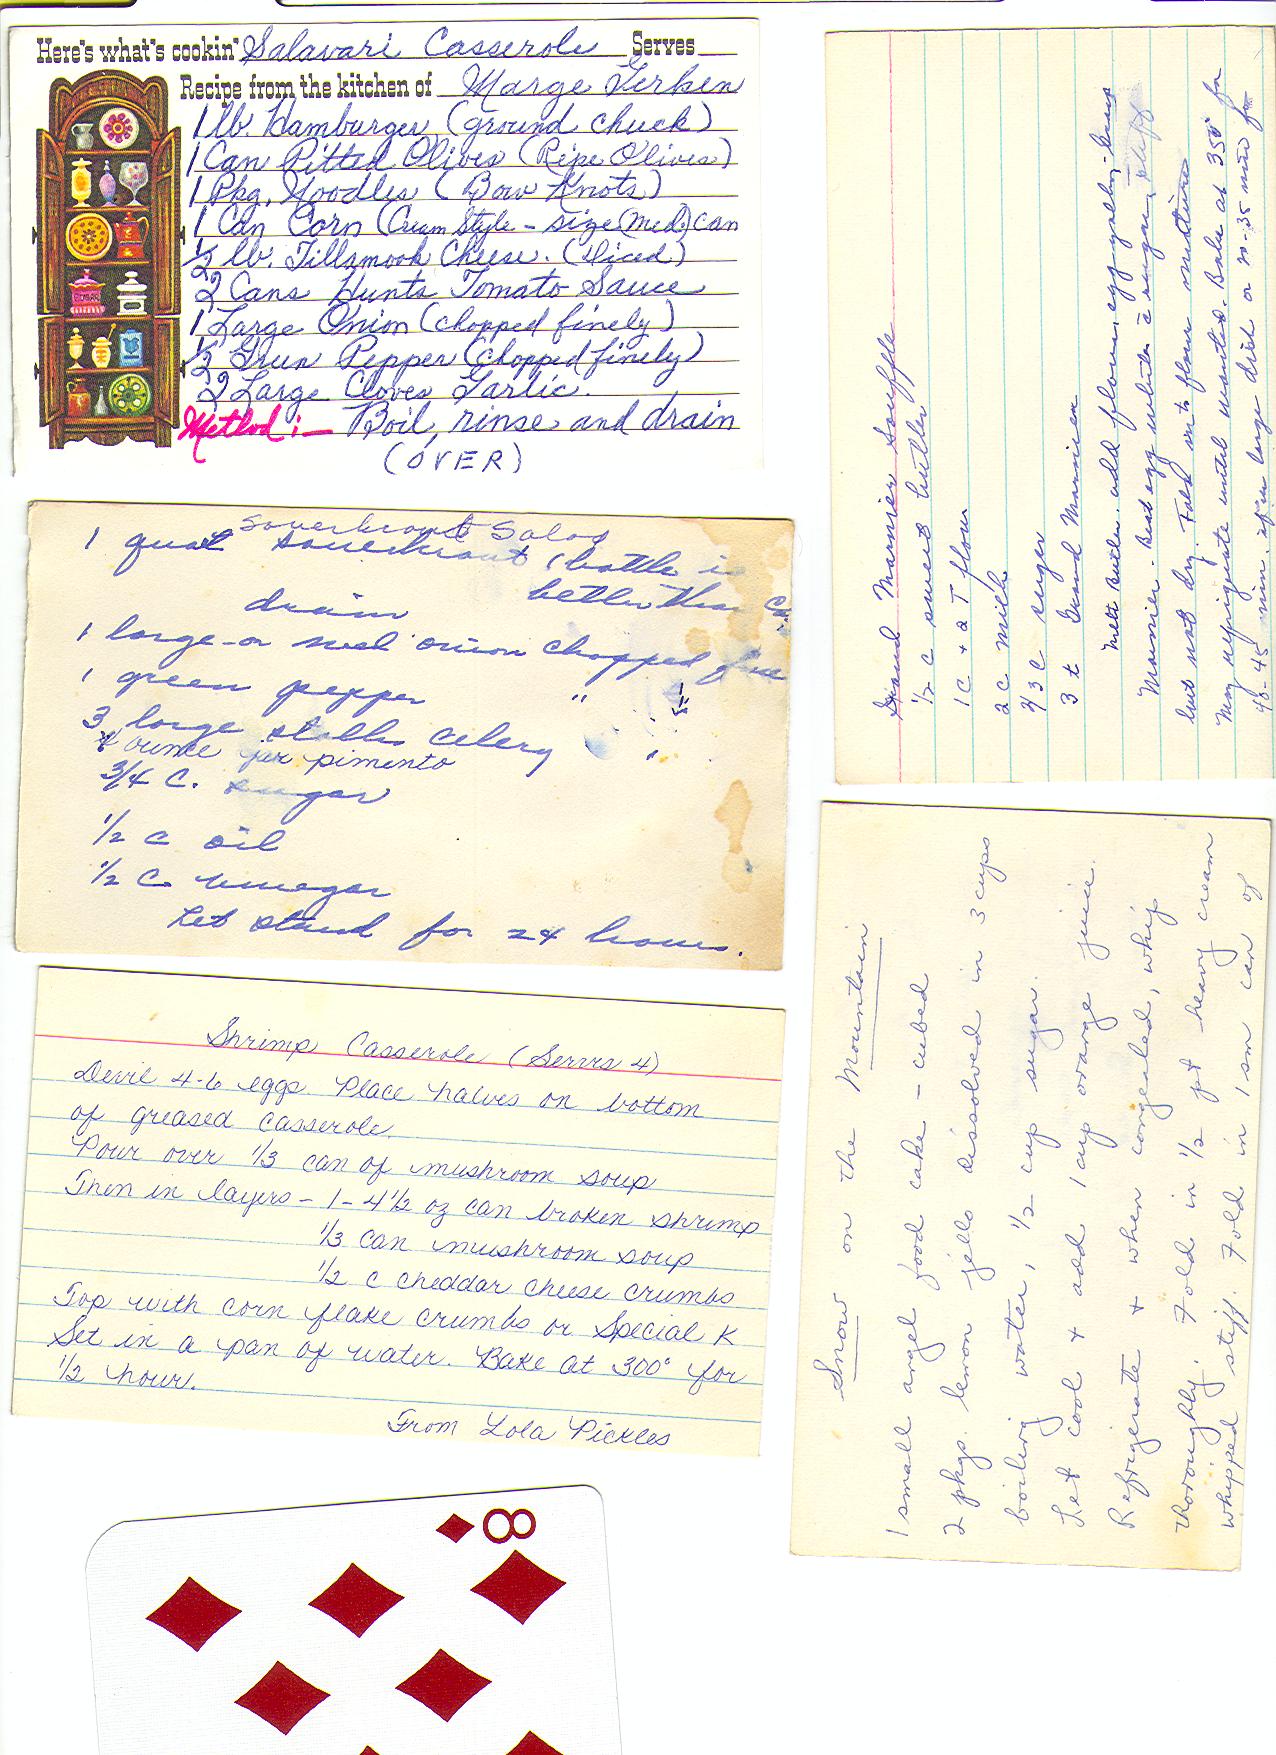 Here's what's cookin' Salavari Casserole Serves
Recipe from the kitchen of Marge Gerken
1 lb. Hamburger (ground chuck)
1 Can Pitted Olives (Ripe Olives)
1 Pkg. Noodles (Bow Knots)
1 Can Corn (Cream Style - size (Med.) can
1/2 lb. Tillamook Cheese. (Sliced)
2 Cans Hunts Tomato Sauce
1 Large Onion (chopped finely)
1/2 Grun Pepper (chopped finely)
2 Large Cloves Garlic.
Method:- Boil, rinse and drain
(OVER)
Sauerkraut Salad
1 quat Sauerkraut (bottle is
drain better than
1 large - or med onion chopped fine
1 green pepper "
3 large stalks celery "
4 ounce jar pimento
3/4 C. sugar
1/2 c oil
1/2 C. vinegar
Let stand for 24 hours.
Shrimp Casserole (Serves 4)
Devil 4-6 eggs. Place halves on bottom
of greased casserole.
Pour over 1/3 can of mushroom soup
Then in layers - 1 - 4 1/2 oz can broken shrimp
1/3 can mushroom soup
1/2 c cheddar cheese crumbs
Top with corn flake crumbs or Special K
Set in a pan of water. Bake at 300° for
1/2 hour.
From Lola Pickles
Grand Marnier Souffle
1/2 C sweet butter
1 C + 2 T flour
2 C milk
2/3 C sugar
3 t Grand Marnier
Melt Butter, add flour, egg yolks,
Marnier. Beat egg whites & sugar, stiff
but not dry. Fold into flour mixture
May refrigerate until wanted. Bake at 350° for
40-45 min. if in large dish or 30-35 min for
Snow on the Mountain
1 small angel food cake - cubed
2 pkgs. lemon jello dissolved in 3 cups
boiling water, 1/2 cup sugar.
Let cool + add 1 cup orange juice.
Refrigerate + when congealed, whip
thoroughly. Fold in 1/2 pt heavy cream
whipped stiff. Fold in 1 sm can of
8